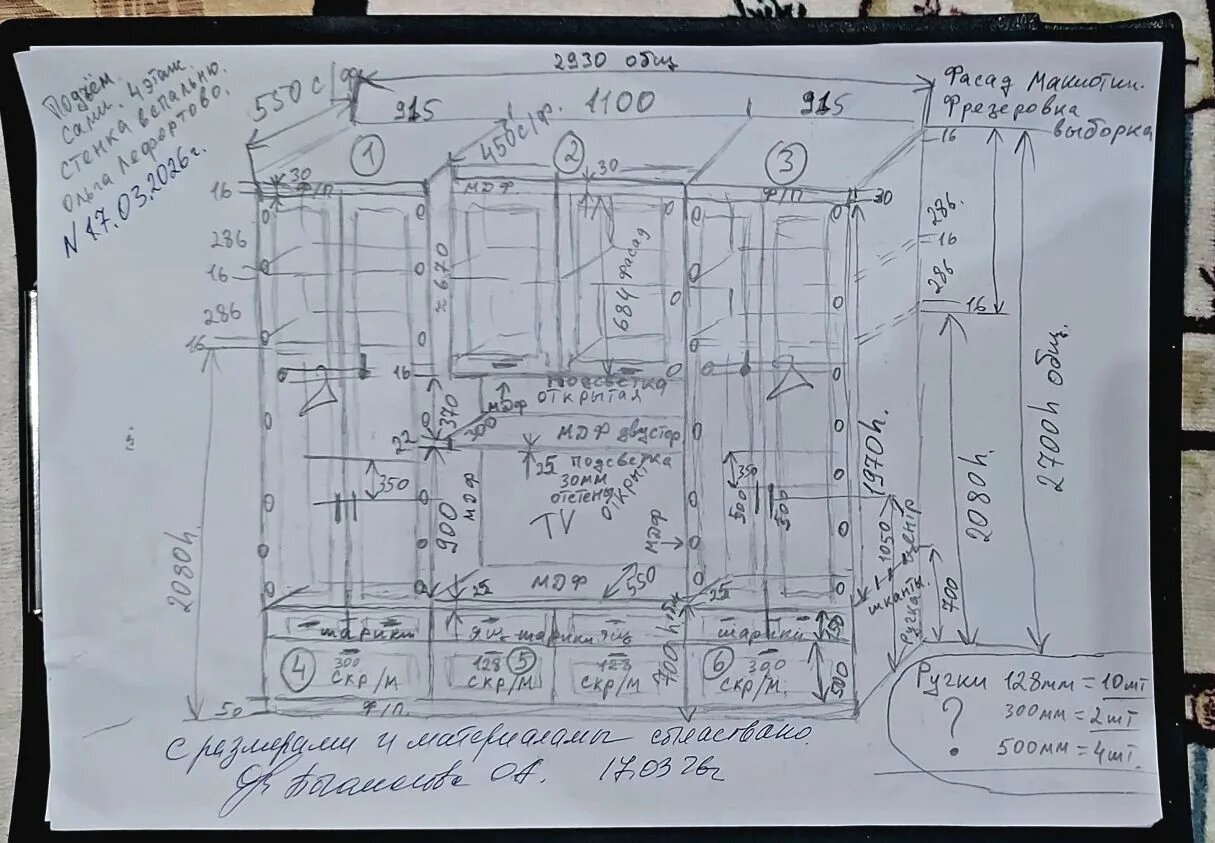 Подъём.
сами. 4 этаж.
стенка в спальню.
Ольга Лефортово.
N 17.03.2026г.
550 с/ф
2930 общ
915
1100
915
450 с/ф.
Фасад
Фрезеровка
выборка
1
2
3
16
30
Ф/П
МДФ
30
Ф/П
30
16
286
16
286
16
≈670
684 фасад
286.
16
286
16
16
370
МДФ
Подсветка
открытая
300
22
МДФ двустор
25
подсветка
30мм
открыт
TV
350
900
МДФ
МДФ
350
500
500
1970h.
1050
ручка
центр
700
2080h.
2700h общ.
2080h.
25
МДФ
550
25
шарики
ящ-шарики ящ
шарики
150
4
300
СКР/М
128
5
СКР/М
128
СКР/М
700h общ
6
300
СКР/М.
500
50
Ф/П.
Ручки 128мм = 10шт
? 300мм = 2шт
500мм = 4шт.
с размерами и материалами согласовано.
О.А. 17.03 26г